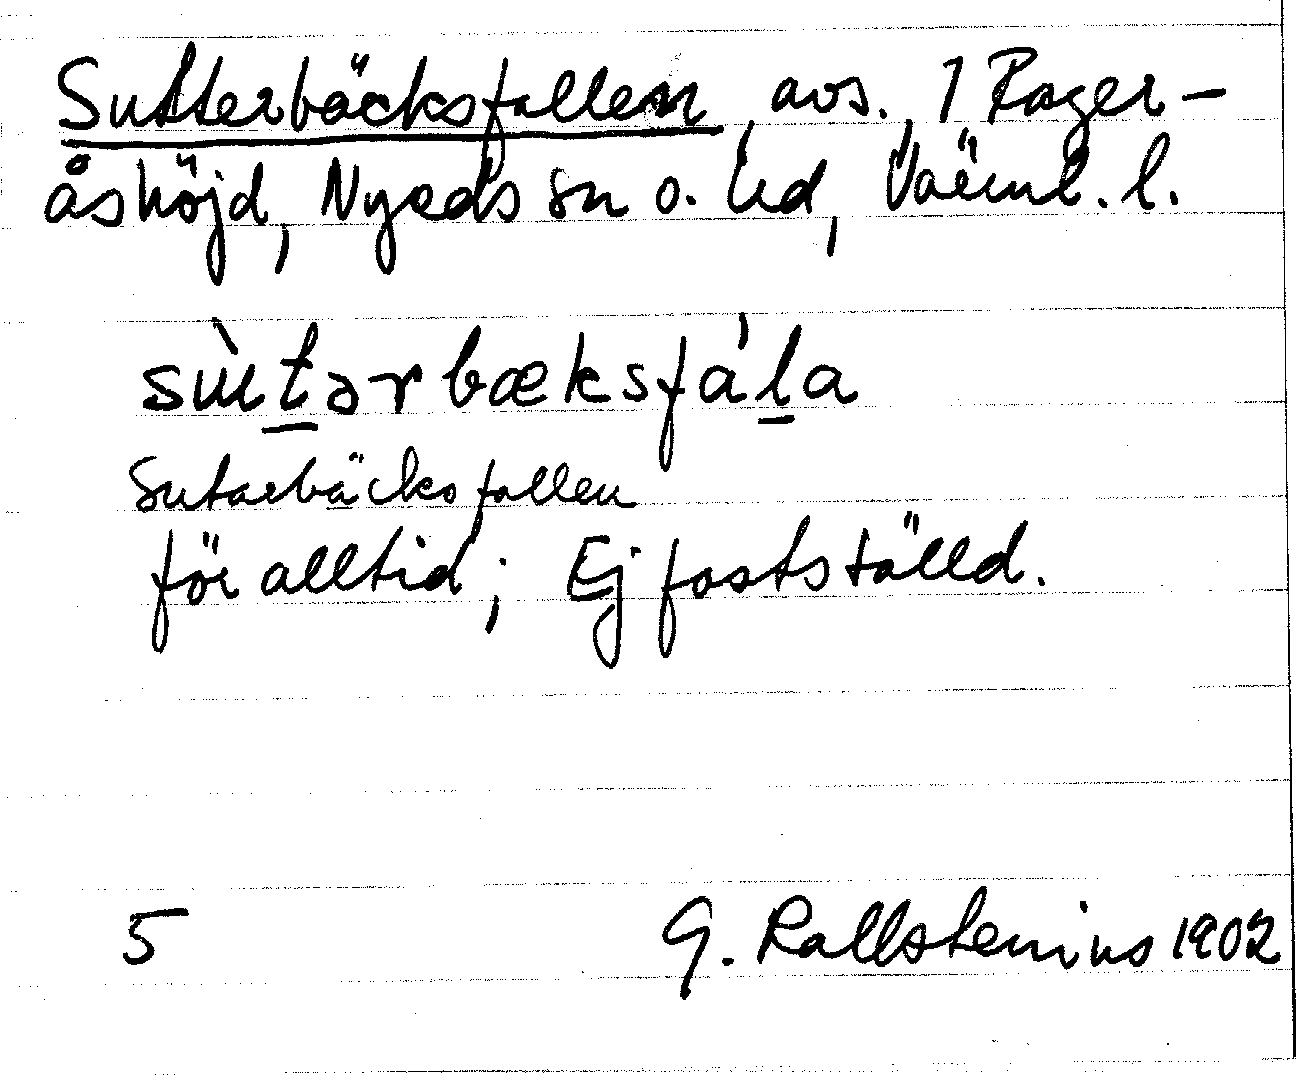 Sutterbäcksfallen, avs., 1 Rager-
åshöjd, Nyeds sn o. hd, Värml. l.
sùtərbæksfála
Sutarbäcksfallen
för alltid; Ej fastställd.
5 G. Kallstenius 1902